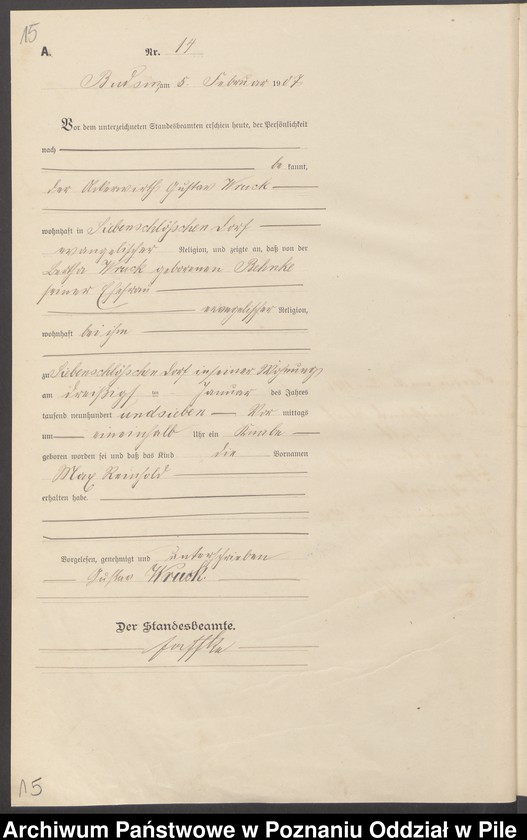 15
A.
Nr. 14
Budsin am 5. Februar 1907
Vor dem unterzeichneten Standesbeamten erschien heute, der Persönlichkeit
nach
be kannt,
der Ackerwirth Gustav Wruck
wohnhaft in Siebenschlößchen Dorf
evangelischer Religion, und zeigte an, daß von der
Bertha Wruck geborenen Behnke
seiner Ehefrau
evangelischer Religion,
wohnhaft bei ihm
zu Siebenschlößchen Dorf in seiner Wohnung
am dreißigsten Januar des Jahres
tausend neunhundert und sieben Vor mittags
um eineinhalb Uhr ein Knabe
geboren worden sei und daß das Kind die Vornamen
Max Reinhold
erhalten habe.
Vorgelesen, genehmigt und unterschrieben
Gustav Wruck
Der Standesbeamte.
15
Archiwum Państwowe w Poznaniu Oddział w Pile